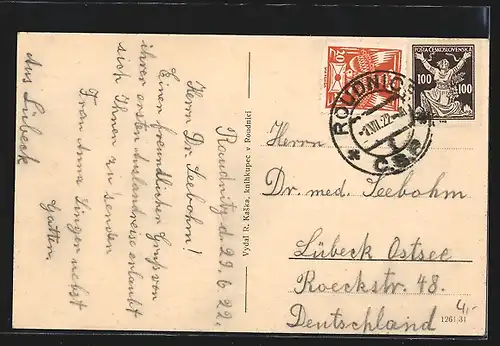 Roudnitz d. 29.6.22.
Herrn Dr. Seebohm!
Einen freundlichen Gruß von
ihrer ersten Auslandreise erlaubt
sich Ihnen zu senden
Frau Anna Lingen nebst
Gatten,
Aus Lübeck
Vydal R. Kaška, knihkupec v Roudnici
20
POŠTA ČESKOSLOVENSKÁ
100
100
ROUDNICE
ČSR
Herrn
Dr. med. Seebohm
Lübeck Ostsee
Roeckstr. 48.
Deutschland
4,-
1261/31